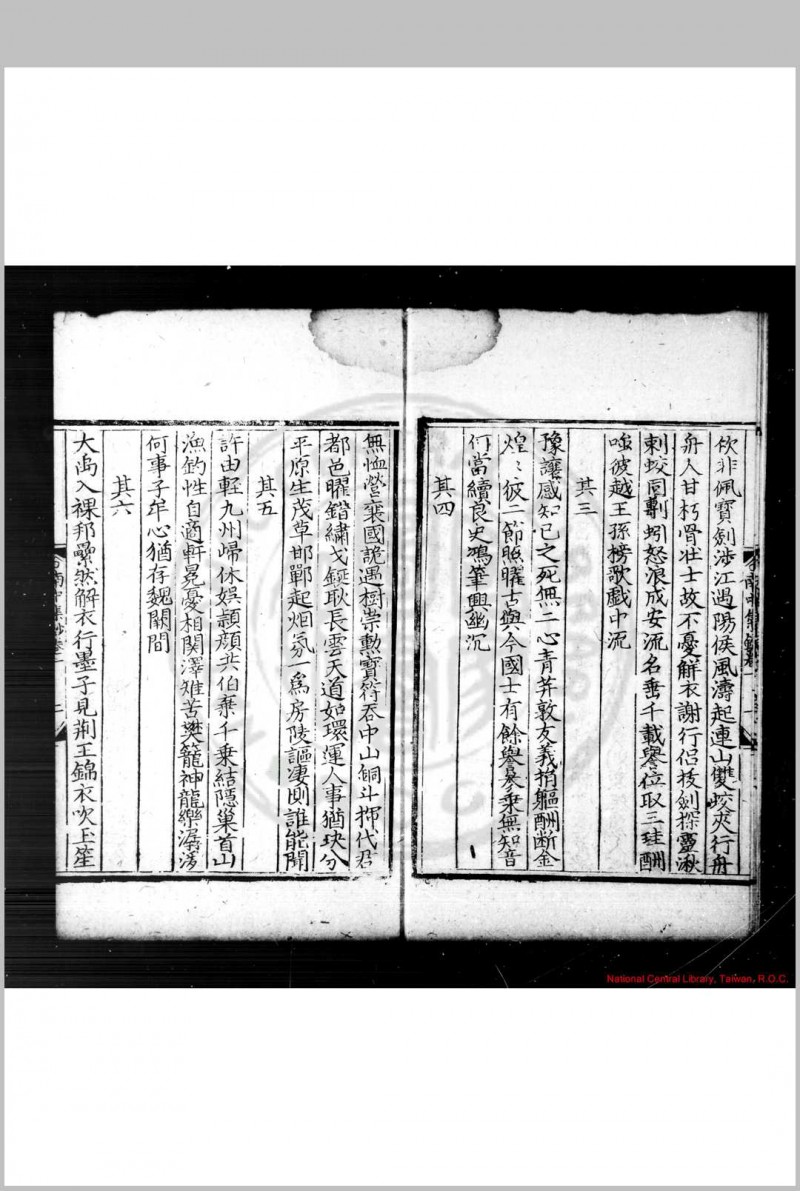 佽非佩寶劍涉江遇陽侯風濤起連山雙蛟夾行舟
舟人甘朽骨壯士故不憂解衣謝行侶拔劍探靈湫
刺蛟同剸蚓怒浪成安流名垂千載譽位取三珪酬
嗤彼越王孫榜歌戲中流
其三
豫讓感知己之死無二心青荓敦友義捐軀酬断金
煌〻彼二節照曜古與今國士有餘譽參乘無知音
何當續良史鴻筆興幽沉
其四
無恤營裘國詭遇樹崇勲寳符吞中山銅斗揕代君
都邑曜錯繡戈鋋耿長雲天道如環運人事猶玦分
平原生茂草邯鄲起烟氛一爲房陵謳凄惻誰能聞
其五
許由輕九州歸休娯潁共伯棄千乗結隱巢首山
漁釣性自適軒冕憂相関澤雉苦樊籠神龍樂潺湲
何事子牟心猶存魏闕間
其六
大禹入裸邦纍然解衣行墨子見荆王錦衣吹玉笙
National Central Library, Taiwan, R.O.C.